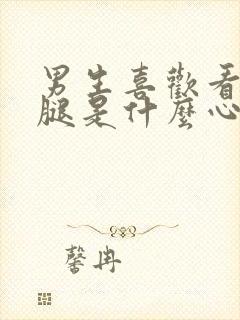 男生喜歡看
腿是什麼心
馨冉